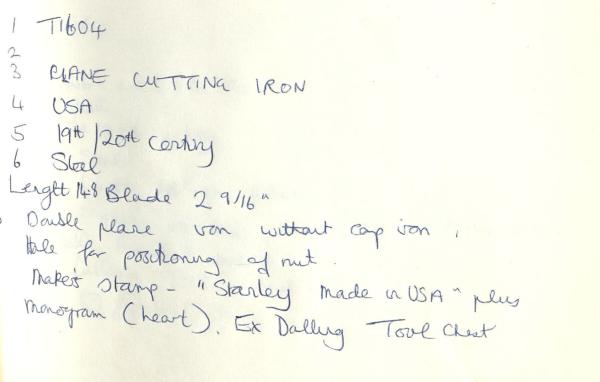 1 T1604
2
3 PLANE CUTTING IRON
4 USA
5 19th/20th Century
6 Steel
Length 14.8 Blade 2 9/16"
Double plane iron without cap iron.
Hole for positioning of nut.
Maker's stamp - "Stanley made in USA" plus
monogram (heart). Ex Tool Chest